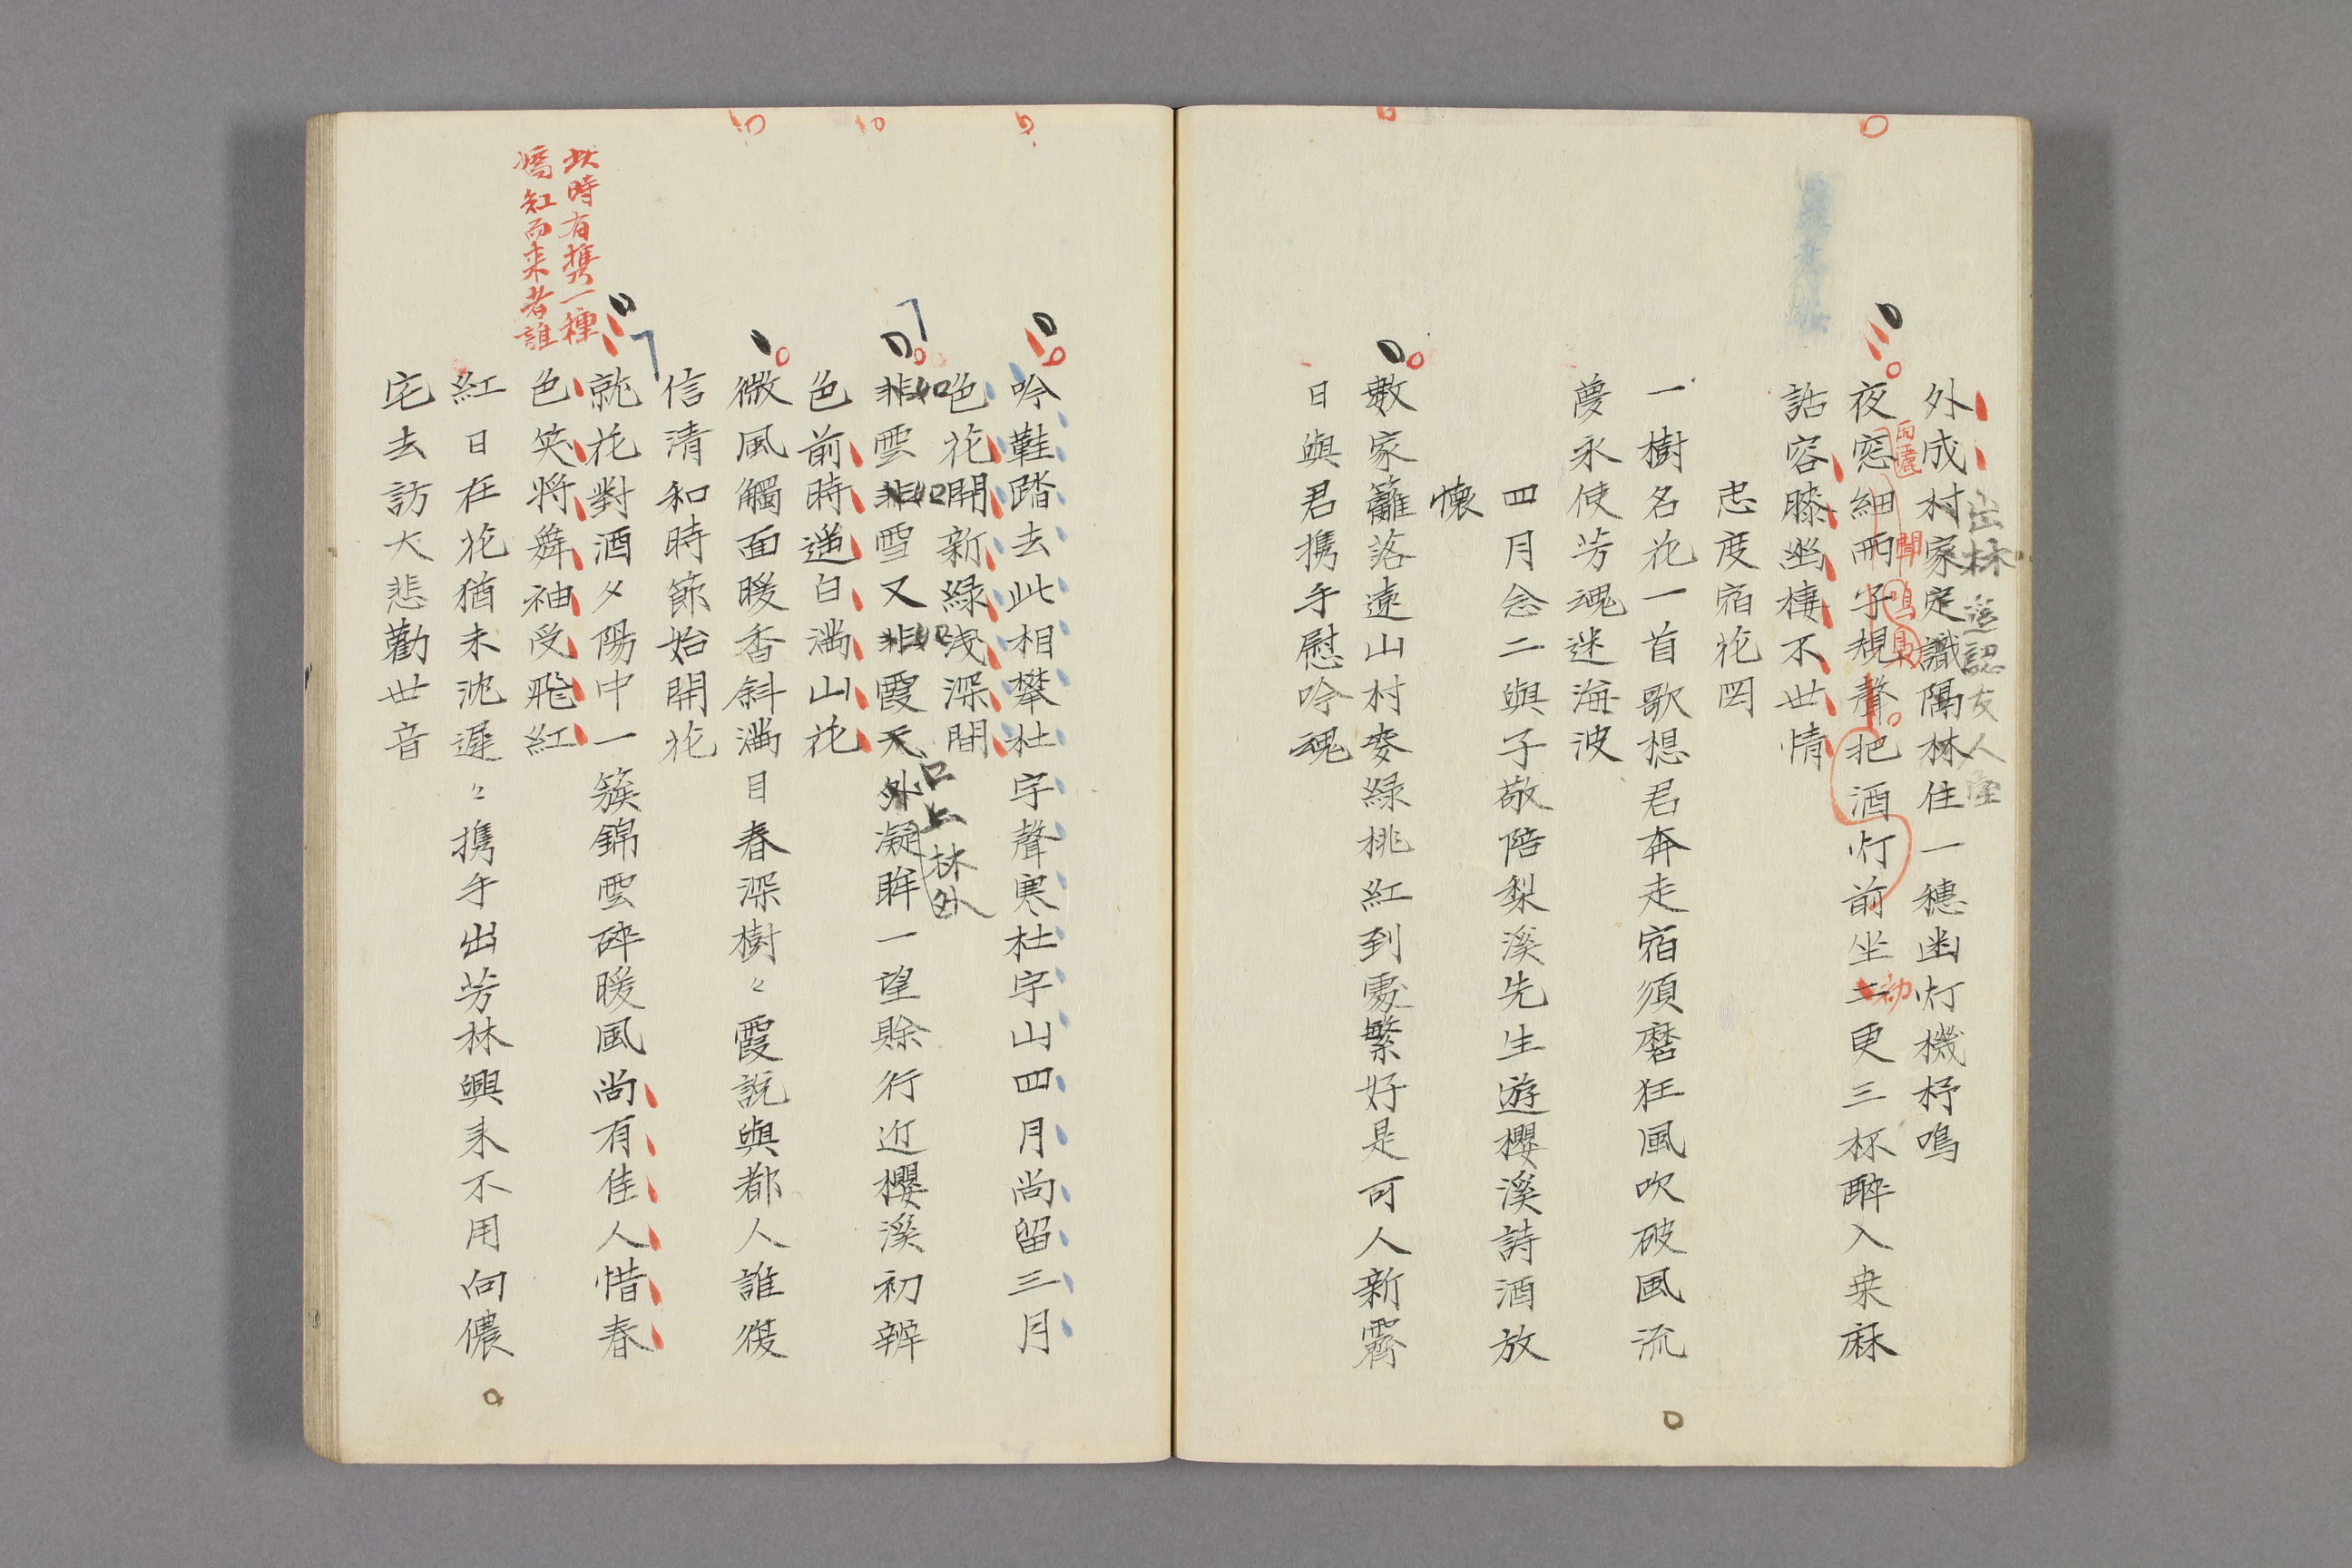 外成村家定識隔林住一穗幽灯機杼鳴
出林遥認友人
夜窓細雨子規聲把酒灯前坐二更三杯酔入桒麻
雨
聞
鳴
初
話容膝幽棲不世情
忠度宿花図
一樹名花一首歌想君奔走宿須磨狂風吹破風流
夢永使芳魂迷海波
四月念二與子敬陪梨溪先生遊櫻溪詩酒放
懷
數家籬落遠山村麥緑桃紅到處繁好是可人新霽
日與君携手慰吟魂
吟鞋踏去此相攀杜宇聲寒杜宇山四月尚留三月
色花開新緑浅深間
非雲非雪又非霞天外凝眸一望賖行近櫻溪初辨
林外
色前時遥白満山花
微風觸面暖香斜満目春深樹〻霞説與都人誰復
信清和時節始開花
就花對酒夕陽中一簇錦雲砕暖風尚有佳人惜春
色笑将舞袖受飛紅
此時有携一種
嬌紅而来者誰
紅日在花猶未沈遲〻携手出芳林興来不用向儂
宅去訪大悲勸世音